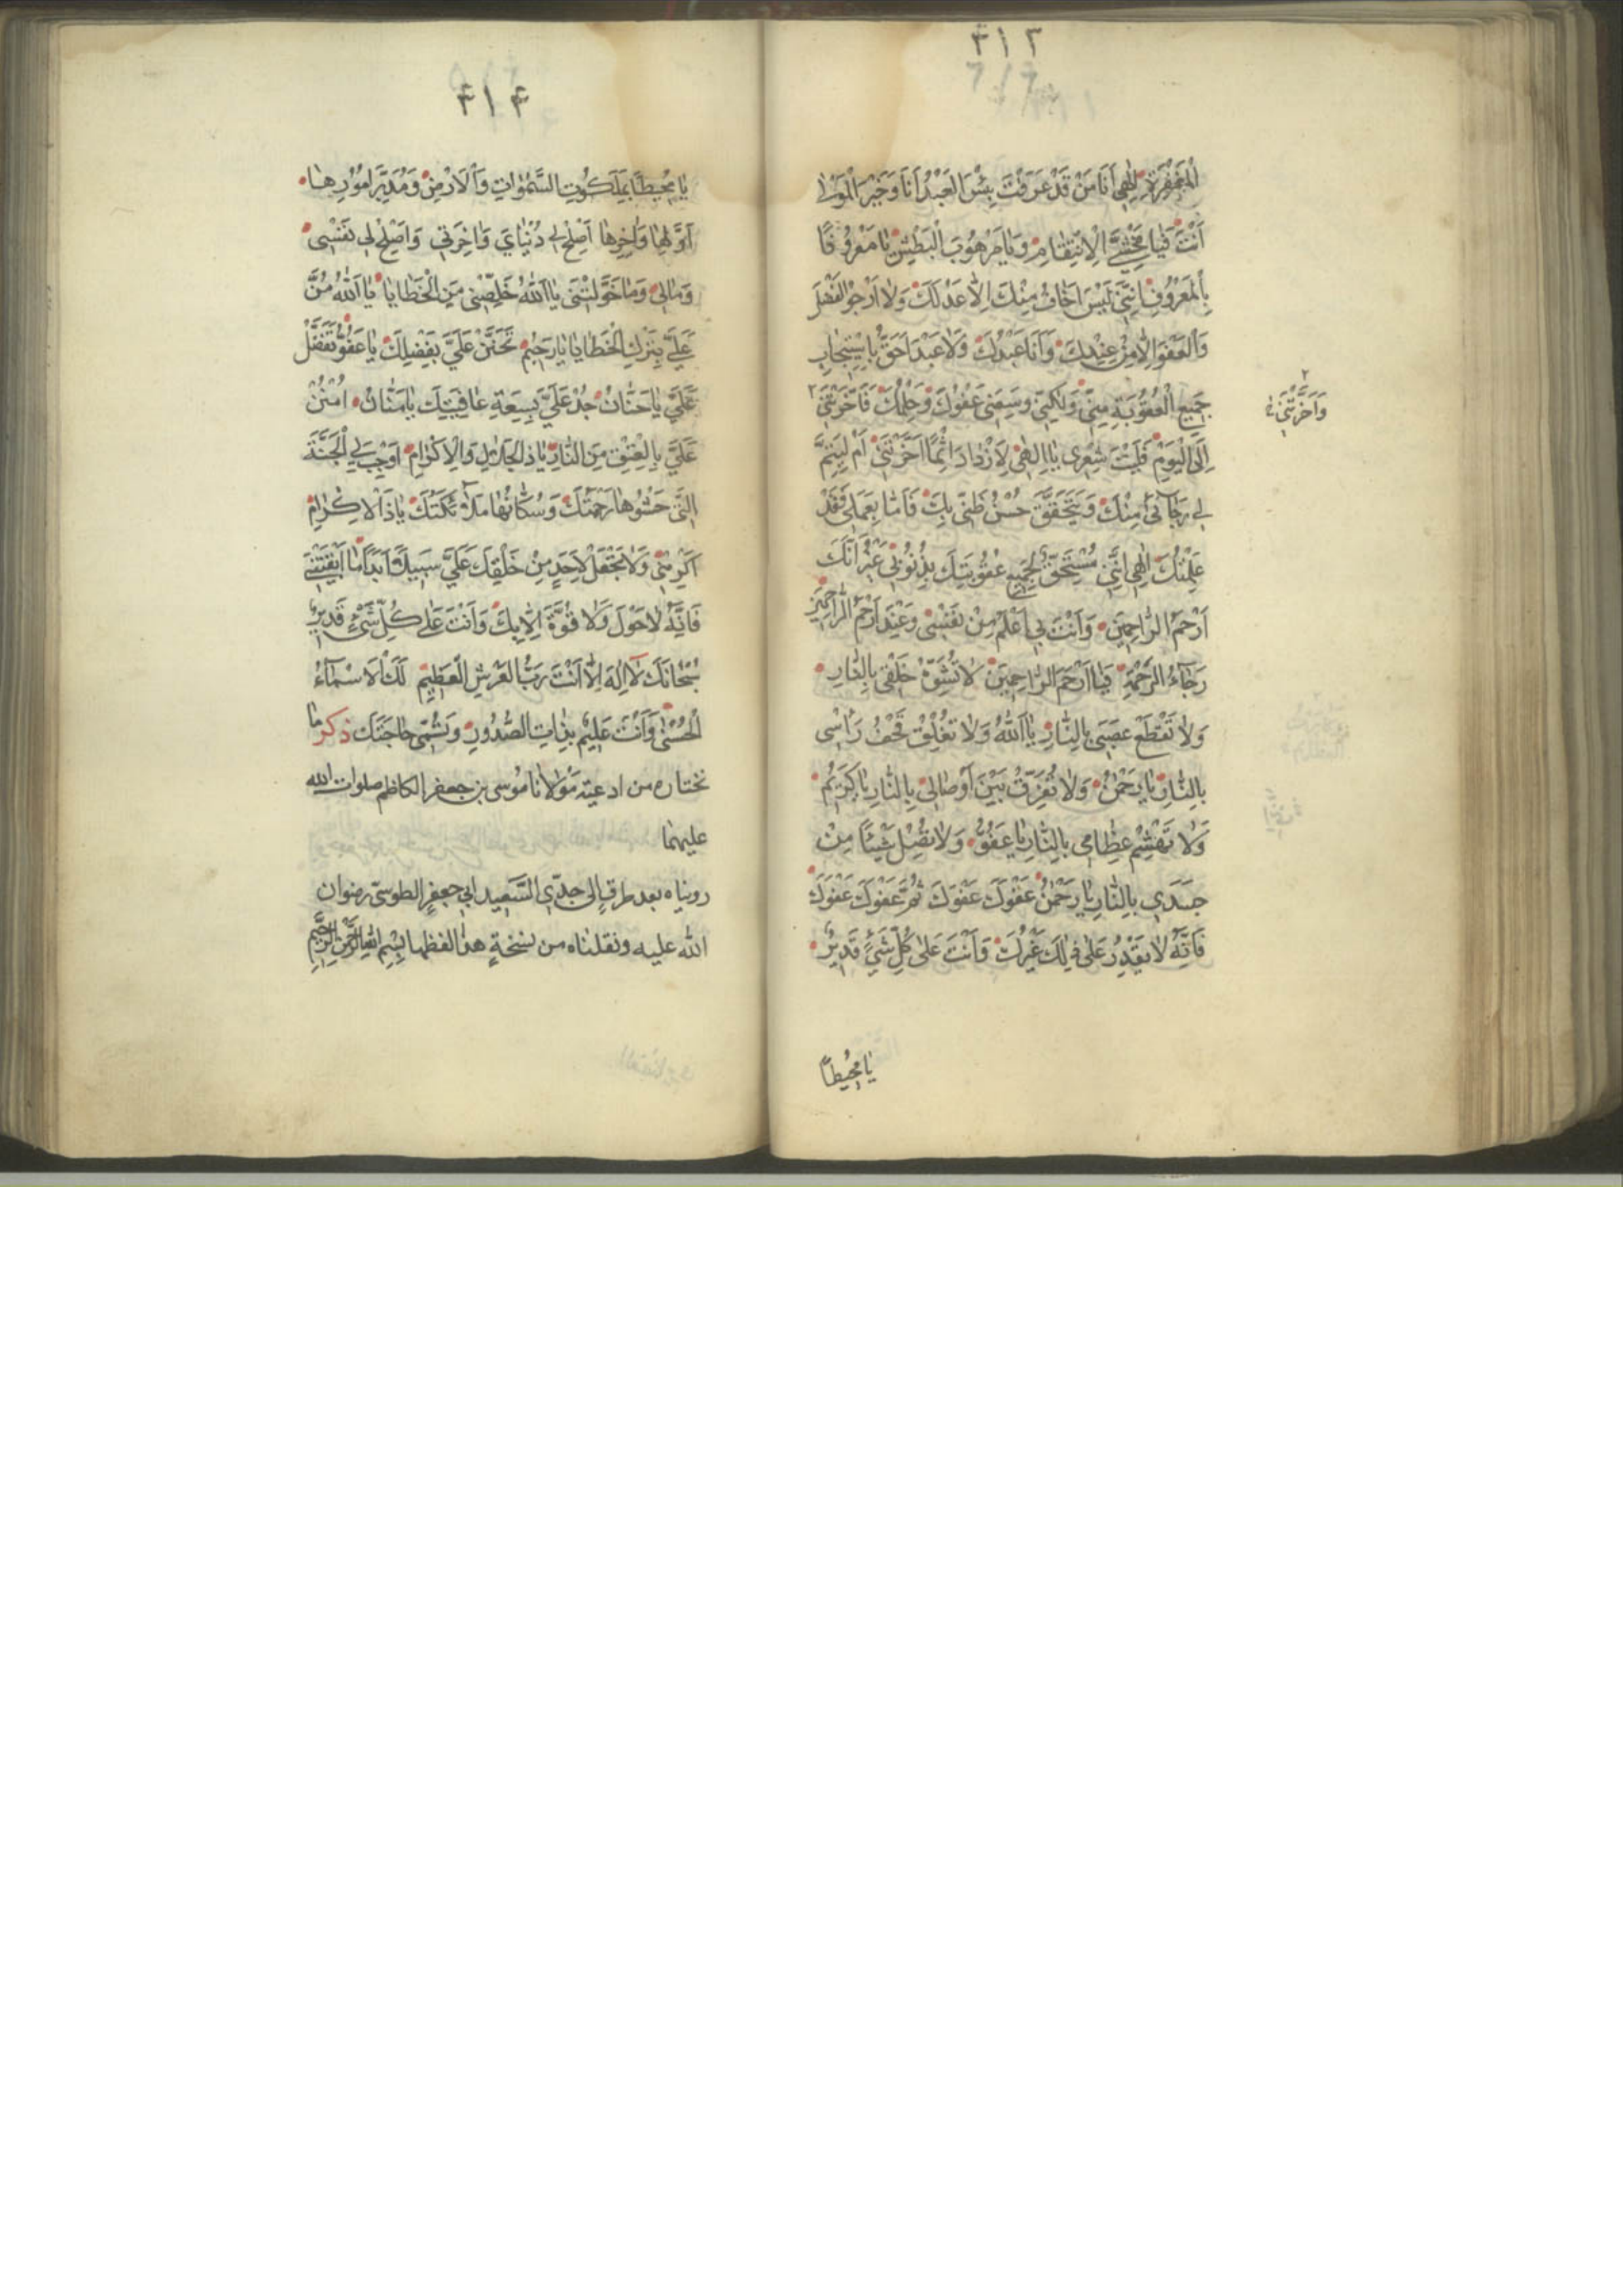 ٣١٣
الْمَغْفِرَةِ اِلٰهِي اَنَا مَنْ قَدْ عَرَفْتَ بِئْسَ الْعَبْدُ اَنَا وَخَيْرُ الْمَوْلٰى
اَنْتَ فَيٰا مَخْشِيَّ الْاِنْتِقٰامِ وَيٰا مَرْهُوبَ الْبَطْشِ يٰا مَعْرُوفًا
بِالْمَعْرُوفِ اِنَّنِي لَيْسَ اَخٰافُ مِنْكَ اِلّٰا عَدْلَكَ وَلٰا اَرْجُو الْفَضْلَ
وَالْعَفْوَ اِلّٰا مِنْ عِنْدِكَ وَاَنَا عَبْدُكَ وَلٰا عَبْدَ اَحَقُّ بِاسْتِيجٰابِ
جَمِيعِ الْعُقُوبَةِ مِنِّي وَلٰكِنِّي وَسِعَنِي عَفْوُكَ وَحِلْمُكَ فَاَخَّرْتَنِي ٢
٢ وَاَخَّرْتَنِي
اِلَى الْيَوْمِ فَلَيْتَ شِعْرِي يٰا اِلٰهِي لِاَزْدٰادَ اِثْمًا اَخَّرْتَنِي اَمْ لِيَتِمَّ
لِي رَجٰائِي مِنْكَ وَيَتَحَقَّقَ حُسْنُ ظَنِّي بِكَ فَاَمّٰا بِعَمَلِي فَقَدْ
عَلِمْتُكَ اِلٰهِي اِنَّنِي مُسْتَحِقٌّ لِجَمِيعِ عُقُوبَتِكَ بِذُنُوبِي غَيْرَ اَنَّكَ
اَرْحَمُ الرّٰاحِمِينَ وَاَنْتَ بِي اَعْلَمُ مِنْ نَفْسِي وَعِنْدَ اَرْحَمِ الرّٰاحِمِينَ
رَجٰاءُ الرَّحْمَةِ فَيٰا اَرْحَمَ الرّٰاحِمِينَ لٰا تُشَوِّهْ خَلْقِي بِالنّٰارِ
وَلٰا تَقْطَعْ عَصَبِي بِالنّٰارِ يٰا اَللّٰهُ وَلٰا تَفْلِقْ قَحْفَ رَأْسِي
بِالنّٰارِ يٰا رَحْمٰنُ وَلٰا تُفَرِّقْ بَيْنَ اَوْصٰالِي بِالنّٰارِ يٰا كَرِيمُ
وَلٰا تَهْشِمْ عِظٰامِي بِالنّٰارِ يٰا عَفُوُّ وَلٰا تُصِلْ شَيْئًا مِنْ
جَسَدِي بِالنّٰارِ يٰا رَحْمٰنُ عَفْوَكَ عَفْوَكَ ثُمَّ عَفْوَكَ عَفْوَكَ
فَاِنَّهُ لٰا يَقْدِرُ عَلٰى ذٰلِكَ غَيْرُكَ وَاَنْتَ عَلٰى كُلِّ شَيْءٍ قَدِيرٌ
يٰا مُحِيطًا
٣١۴
يٰا مُحِيطًا بِمَلَكُوتِ السَّمٰوٰاتِ وَالْاَرْضِ وَمُدَبِّرَ اُمُورِهٰا
اَوَّلِهٰا وَاٰخِرِهٰا اَصْلِحْ لِي دُنْيٰايَ وَاٰخِرَتِي وَاَصْلِحْ لِي نَفْسِي
وَمٰالِي وَمٰا خَوَّلْتَنِي يٰا اَللّٰهُ خَلِّصْنِي مِنَ الْخَطٰايٰا يٰا اَللّٰهُ مُنَّ
عَلَيَّ بِتَرْكِ الْخَطٰايٰا يٰا رَحِيمُ تَحَنَّنْ عَلَيَّ بِفَضْلِكَ يٰا عَفُوُّ تَفَضَّلْ
عَلَيَّ يٰا حَنّٰانُ جُدْ عَلَيَّ بِسِعَةِ عٰافِيَتِكَ يٰا مَنّٰانُ اُمْنُنْ
عَلَيَّ بِالْعِتْقِ مِنَ النّٰارِ يٰا ذَا الْجَلٰالِ وَالْاِكْرٰامِ اَوْجِبْ لِيَ الْجَنَّةَ
الَّتِي حَشْوُهٰا رَحْمَتُكَ وَسُكّٰانُهٰا مَلٰائِكَتُكَ يٰا ذَا الْاِكْرٰامِ
اَكْرِمْنِي وَلٰا تَجْعَلْ لِاَحَدٍ مِنْ خَلْقِكَ عَلَيَّ سَبِيلًا اَبَدًا مٰا اَبْقَيْتَنِي
فَاِنَّهُ لٰا حَوْلَ وَلٰا قُوَّةَ اِلّٰا بِكَ وَاَنْتَ عَلٰى كُلِّ شَيْءٍ قَدِيرٌ
سُبْحٰانَكَ لٰا اِلٰهَ اِلّٰا اَنْتَ رَبُّ الْعَرْشِ الْعَظِيمِ لَكَ الْاَسْمٰاءُ
الْحُسْنٰى وَاَنْتَ عَلِيمٌ بِذٰاتِ الصُّدُورِ وَتُسَمِّي حٰاجَتَكَ ذكر ما
نختاره من ادعية مَوْلٰانا مُوسى بن جعفر الكاظم صلوات الله
عليهما
رويناه بعدة طرق الى جدّي السَّعيد ابي جعفر الطوسيّ رضوان
الله عليه ونقلناه من نسخةٍ هذا لفظها بِسْمِ اللهِ الرَّحْمٰنِ الرَّحِيمِ